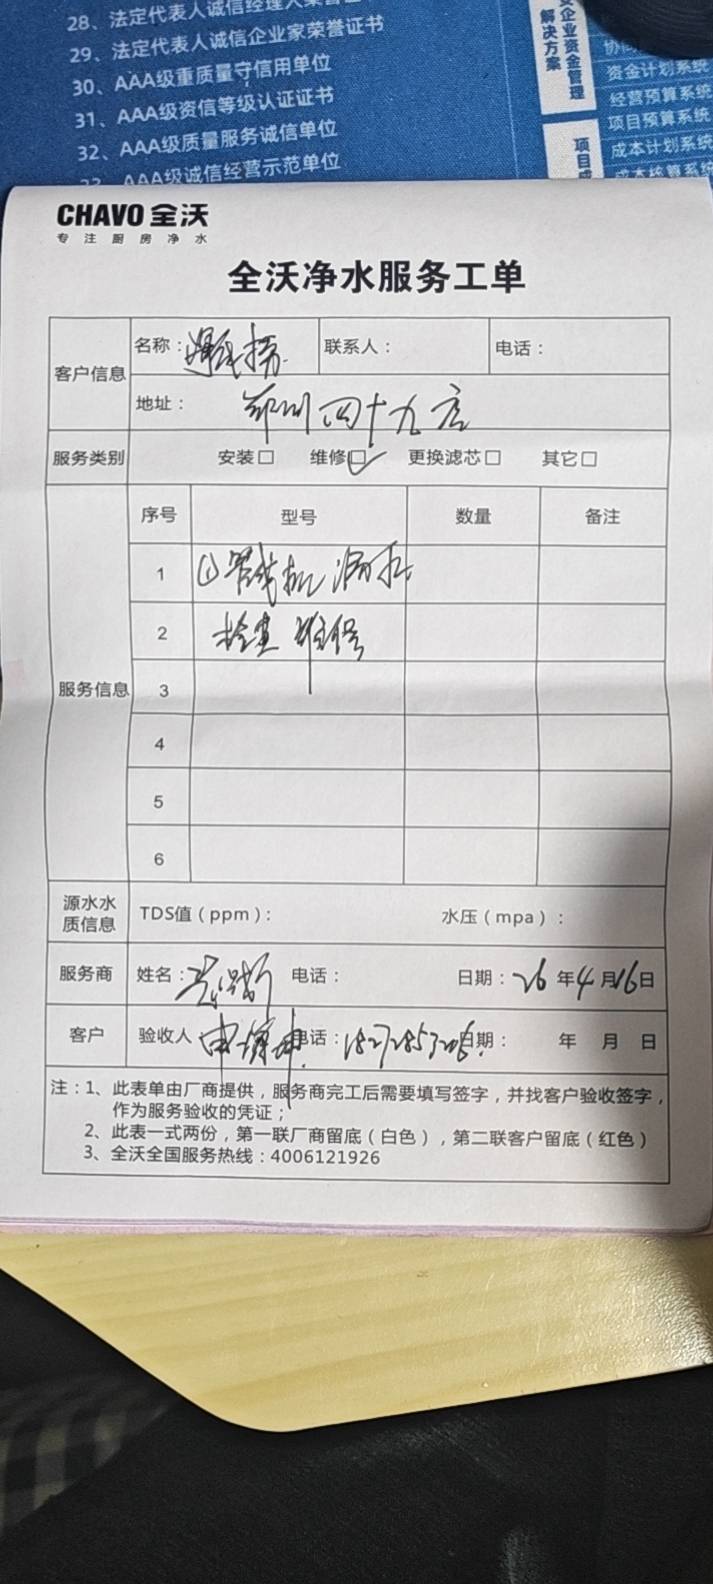 28、法定代表人诚信经理人荣誉证书
29、法定代表人诚信企业家荣誉证书
30、AAA级重质量守信用单位
31、AAA级资信等级认证证书
32、AAA级质量服务诚信单位
33、AAA级诚信经营示范单位
企业资金管理
解决方案
资金计划系统
经营预算系统
项目预算系统
成本计划系统
成本核算系统
CHAVO 全沃
专注厨房净水
全沃净水服务工单
客户信息 名称： 联系人： 电话：
地址：郑州四十九店
服务类别 安装□ 维修☑ 更换滤芯□ 其它□
服务信息 序号 型号 数量 备注
1 ①管线机漏水
2 检查维保
3
4
5
6
源水水质信息 TDS值（ppm）： 水压（mpa）：
服务商 姓名： 电话： 日期：26年4月16日
客户 验收人 电话： 日期： 年 月 日
注：1、此表单由厂商提供，服务商完工后需要填写签字，并找客户验收签字，
作为服务验收的凭证；
2、此表一式两份，第一联厂商留底（白色），第二联客户留底（红色）
3、全沃全国服务热线：4006121926